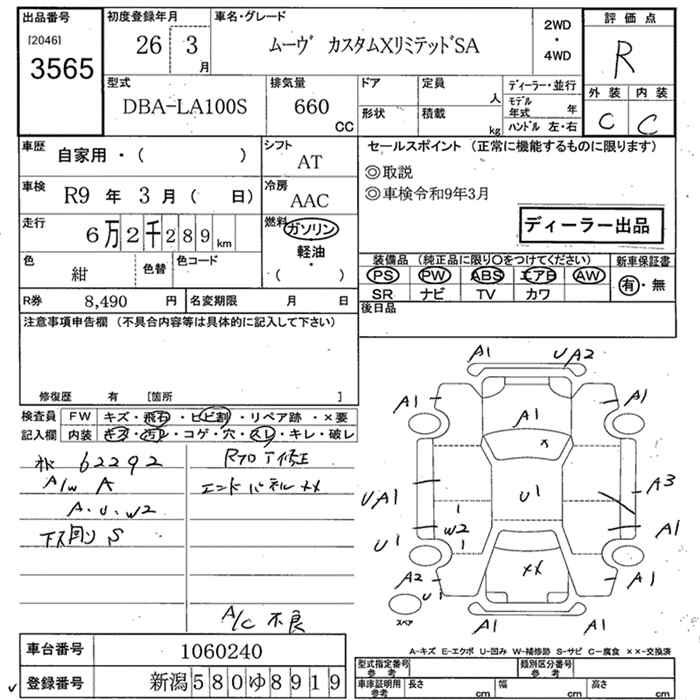 出品番号
[2046]
3565
初度登録年月
26 3
月
車名・グレード
ムーヴ カスタムXリミテッドSA
2WD
・
4WD
評価点
R
外装 内装
C C
型式
DBA-LA100S
排気量
660
CC
ドア
形状
定員
人
積載
kg
ディーラー・並行
モデル年式 年
ハンドル 左・右
車歴
自家用・( )
シフト
AT
車検
R9 年 3 月 ( 日)
冷房
AAC
走行
6万2千289km
燃料
ガソリン
軽油
( ・ )
色
紺
色替
色コード
R券 8,490 円
名変期限 月 日
セールスポイント (正常に機能するものに限ります)
◎取説
◎車検令和9年3月
ディーラー出品
装備品 (純正品に限り○をつけてください)
PS PW ABS エアB AW
SR ナビ TV カワ
新車保証書
有・無
後日品
注意事項申告欄 (不具合内容等は具体的に記入して下さい)
修復歴 有 [箇所 ]
検査員記入欄
FW キズ・飛石・ヒビ割・リペア跡・×要
内装 キズ・汚レ・コゲ・穴・スレ・キレ・破レ
62292
A/W A
A・U・W2
下回り S
Rフロア修正
エンドパネル××
A/C 不良
A1 UA2
A1 A1 A1
U1
UA1 A3
W2
U1 A1
A2 U1 ×× A1
A1 A1
スペア
A-キズ E-エクボ U-凹み W-補修跡 S-サビ C-腐食 ××-交換済
車台番号 1060240
登録番号 新潟580ゆ8919
型式指定番号 参考
類別区分番号 参考
車庫証明用 参考
長さ cm
幅 cm
高さ cm